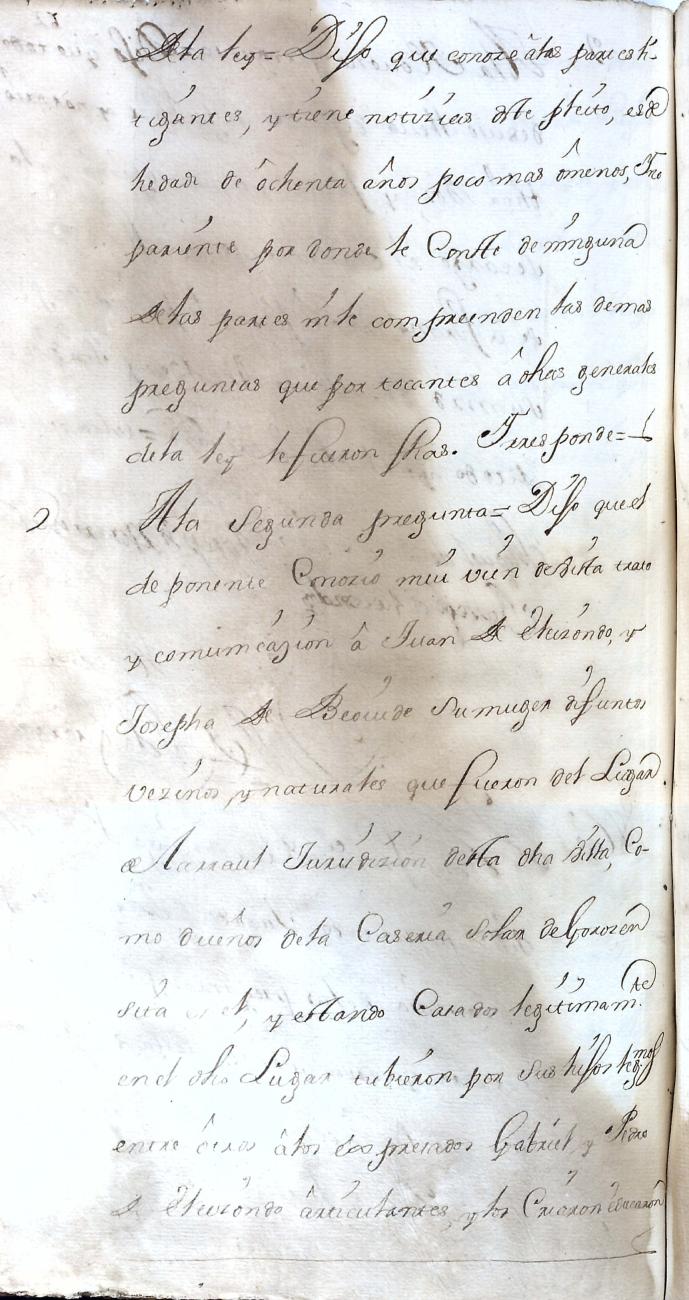 Dela ley = Dijo que conoze âlas partes li-
tigantes, y tiene notizias deste pleito, es de
hedad de ôchenta âños poco mas ômenos, Y no
pariente por donde le Conste de ninguna
Delas partes ni le compreenden las demas
preguntas que por tocantes â dhas generales
dela ley le fueron fhas. Y rresponde =
2 Ala Segunda pregunta = Dijo que el
deponente Conozio mui vien de vista trato
y comunicazion â Juan De Elizondo, y
Josepha De Beoiude su muger difuntos
vezinos y naturales que fueron del Lugar
de Arraut Jurisdizion desta dha villa, Co-
mo dueños dela Caseria Solar de Gorozen
sita en el, y estando Casados legitimamte
en el dho Lugar tubieron por sus hijos legmos
entre ôtros âlos expresados Gabriel y Pedro
De Elizondo ârticulantes, y los Criaron educaron